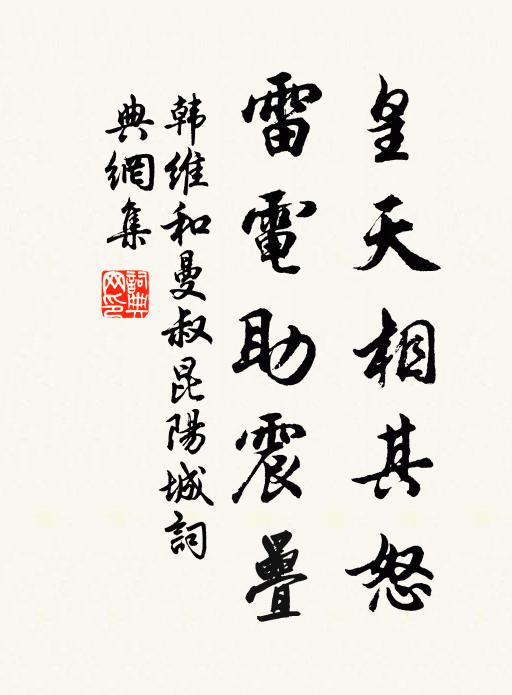 皇天相其怒
雷電助震疊
韩維和曼叔昆陽城詞
典網集
詞典
网印